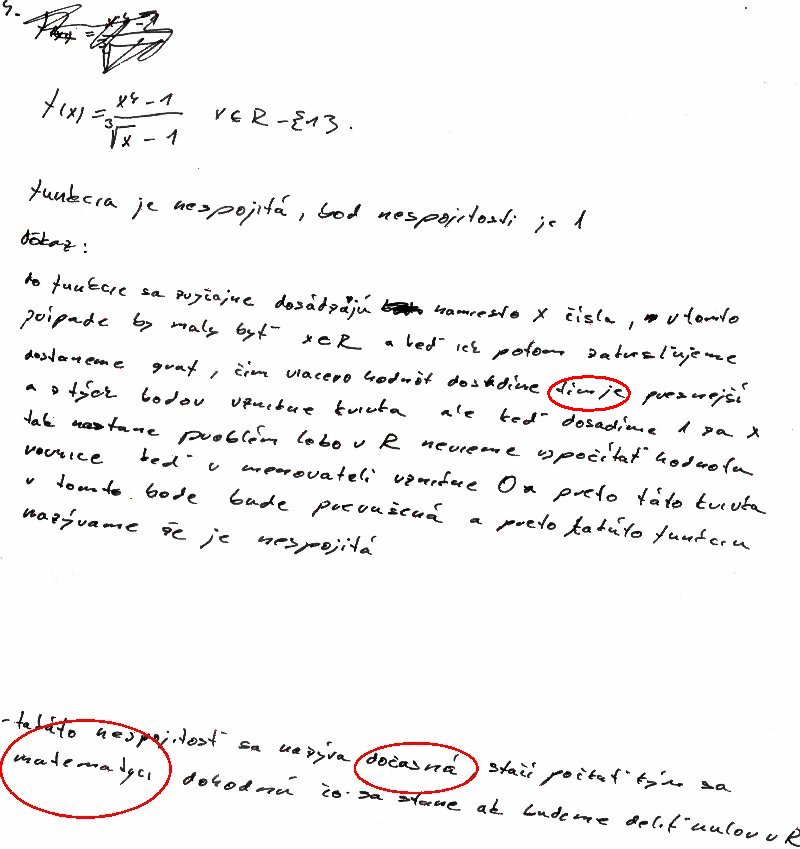 4.
f(x) = x⁴ - 1 / ∛x - 1 x ∈ R - {1}.
funkcia je nespojitá, bod nespojitosti je 1
dôkaz:
do funkcie sa zvyčajne dosádzajú namiesto x čísla, v tomto
prípade by mali byť x∈R a keď ich potom zakreslujeme
dostaneme graf, čím viacero hodnôt dosadíme tím je presnejší
a z tých bodov vznikne krivka ale keď dosadíme 1 za x
tak nastane problém lebo v R nevieme vypočítať hodnotu
rovnice keď v menovateli vznikne 0 a preto táto krivka
v tomto bode bude prerušená a preto takúto funkciu
nazývame že je nespojitá
- takáto nespojitosť sa nazýva dočasná stačí počkať kým sa
matematyci dohodnú čo sa stane ak budeme deliť nulou v R